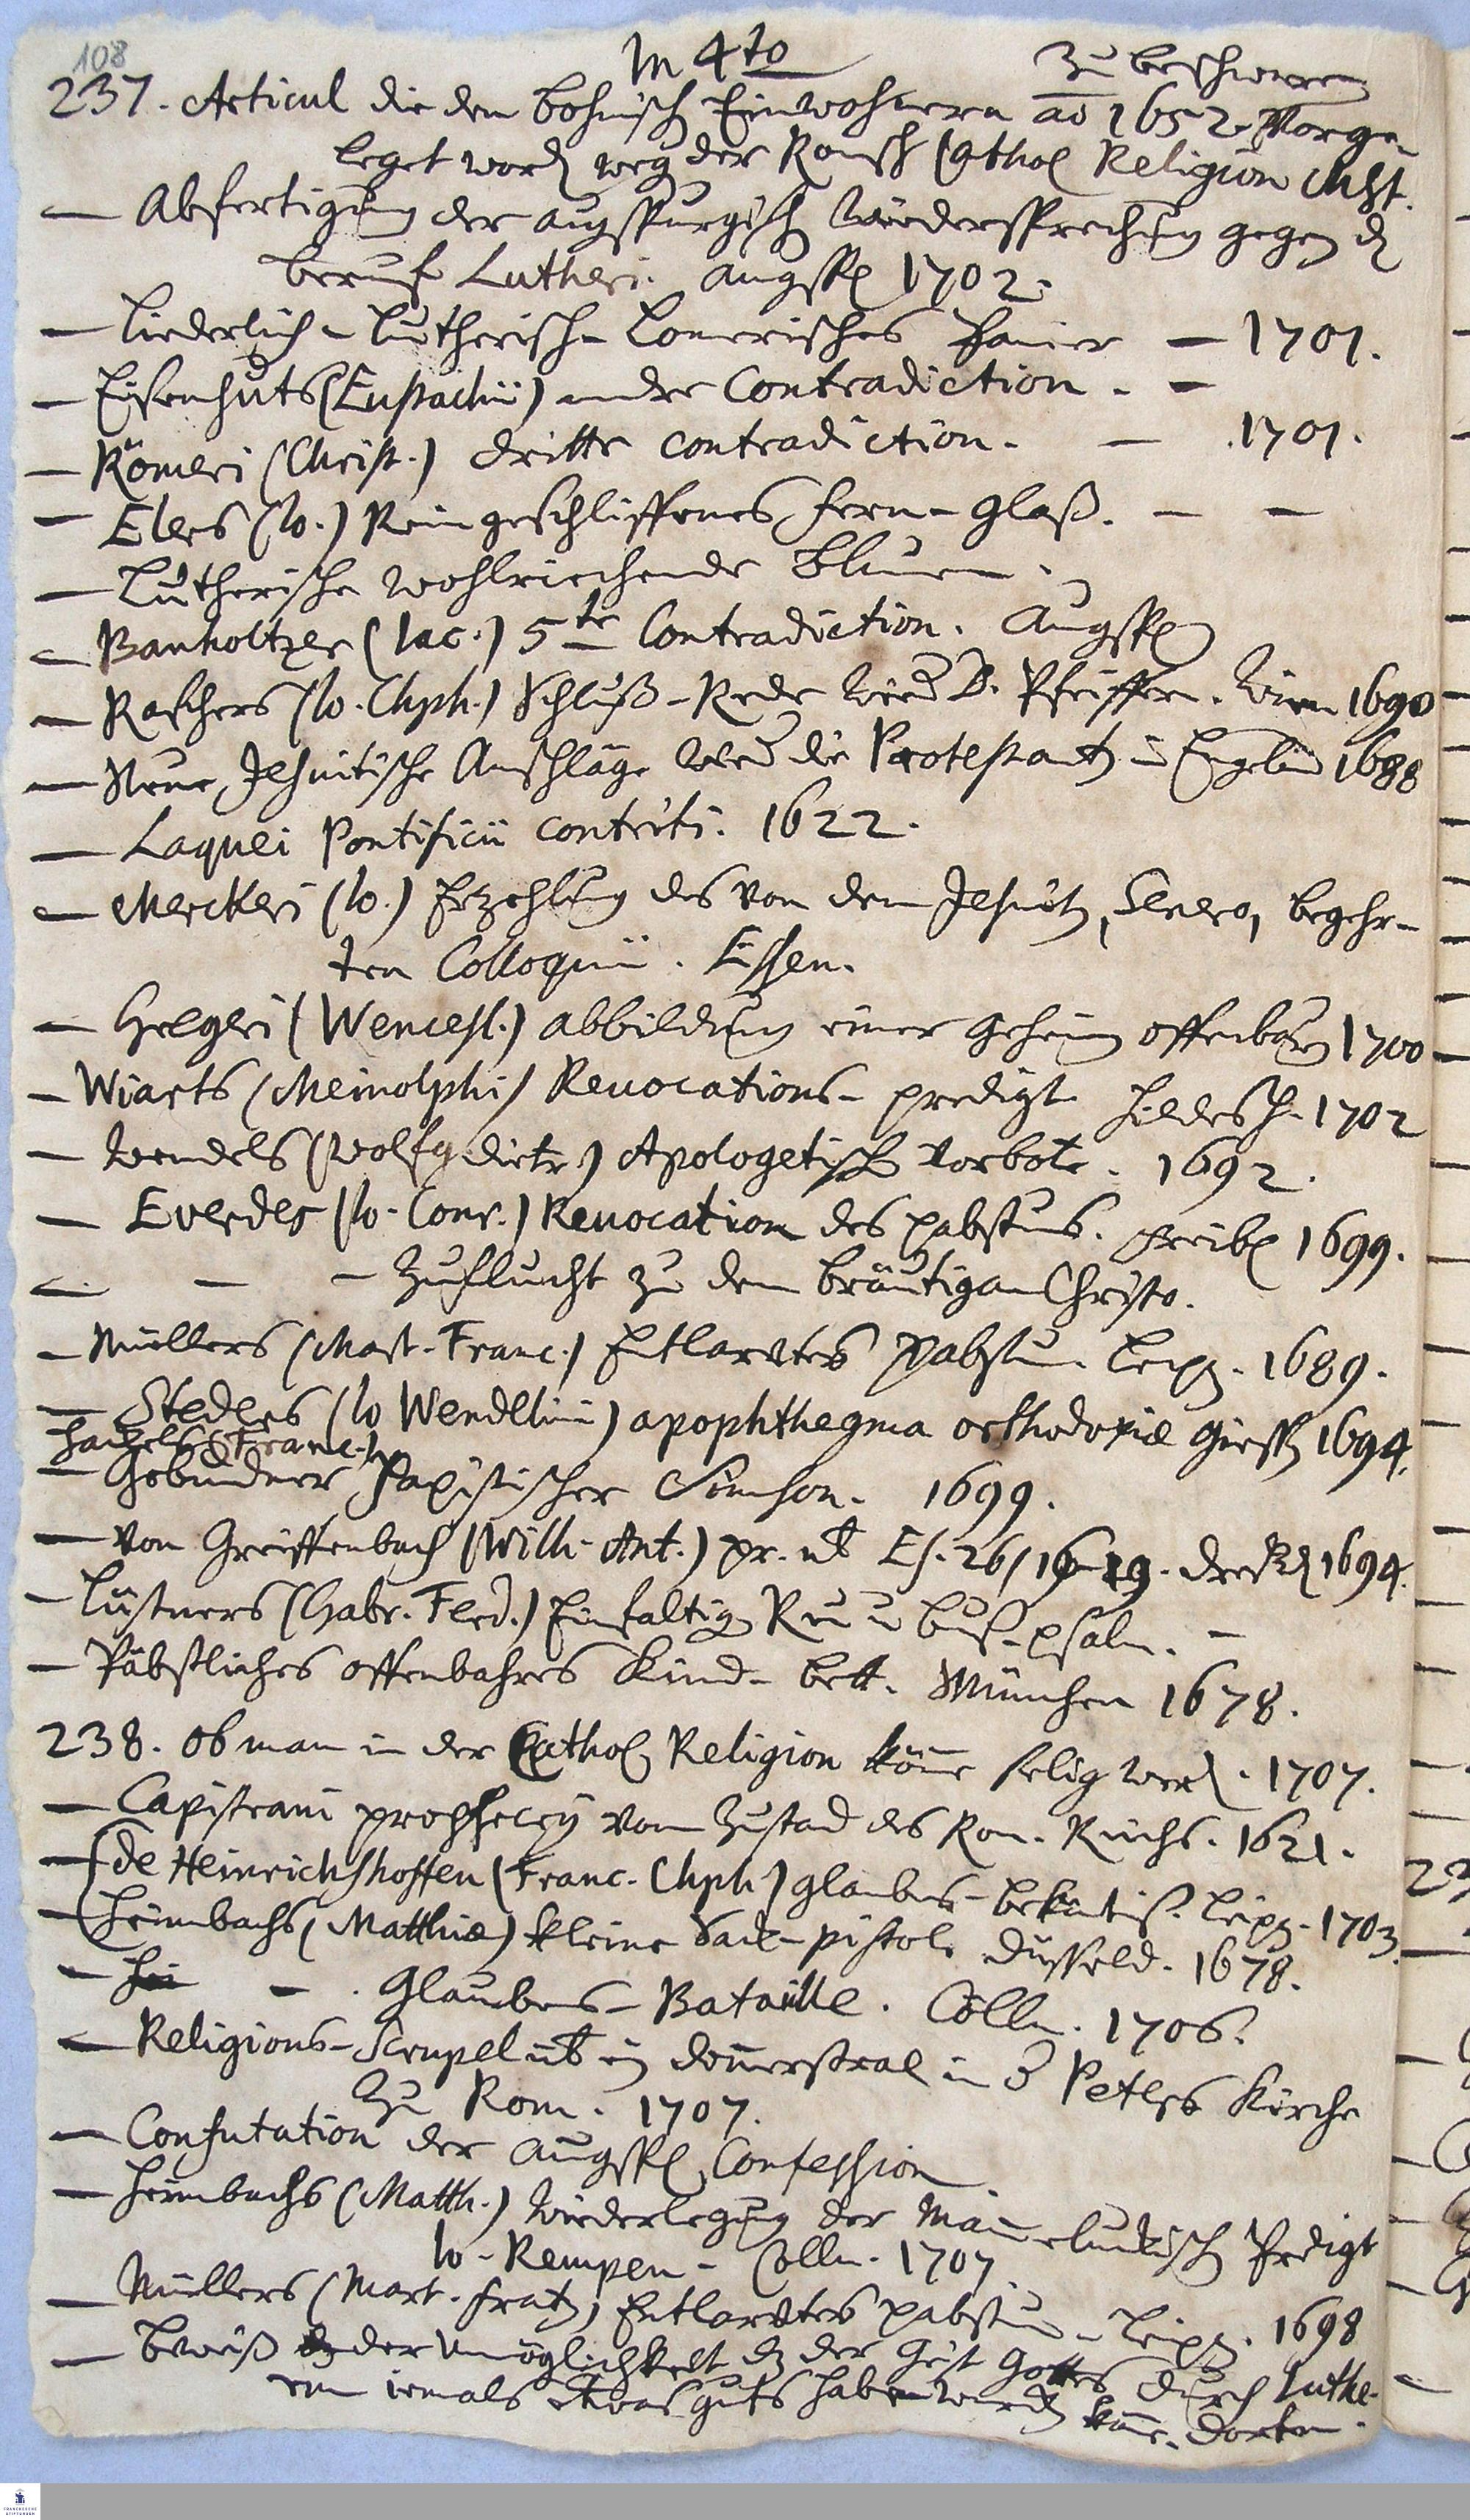 108
In 4to
zu beschweren
237. Articul die den bohmisch Einwohnern ao 1652. Vorge-
leget word weg der Romsch Cathol Religion
— Abfertigung der augspurgisch Wiedersprechung gegen d
beruf Lutheri. Augsp 1702.
— Liederlich-Lutherisch-Lomerisches — 1701.
— Eisenhuts (Eustachii) andre Contradiction. —
— Römeri (Christ.) dritte contradiction. — 1701.
— Elers (Io.) Rein geschliffenes fern-glaß. — —
— Lutherische wohlriechende Blumen.
— Banholtzer (Iac.) 5te Contradiction. Augsp
— Raschers (Io. Chph.) Schluß-Rede wied D. Pfeiffern. Wien 1690
— Neue Jesuitische Anschläge wied die Protestant in Engeland 1688
— Laquei Pontificii contriti. 1622.
— Merckeri (Io.) Erzehlung des von dem Jesuit, begehr-
ten Colloquii. Essen.
— (Wencesl.) abbildung einer geheim offenbar 1700
— Wiarts (Meinolphi) Revocations-predigt Hildesh. 1702
— Wendels (Wolfg. Dietr.) Apologetisch Vorbote. 1692.
— Everdes (Io. Conr.) Revocation des pabstums. 1699.
— — — Zuflucht zu dem bräutigam Christo.
— Müllers (Mart. Franc.) Entlarvtes Pabstum. Leipz. 1689.
— Stedlers (Io Wendelini) apophthegma orthodoxiæ Giess 1694.
(Franc.)
— Gebundner Papistischer Simson. 1699.
— Von Greiffenbach (Wilh. Ant.) pr. üb Es. 26, 16-19. Dresd 1694.
— Lüstners (Gabr. Ferd.) Einfaltig Reu u buß-psalm. —
— Päbstliches offenbahres Kind-bett. München 1678.
238. Ob man in der Cathol Religion könne selig werd. 1707.
— Capistrani prophecey vom Zustad des Rom. Reichs. 1621.
— de Heinrichshoffen (Franc. Chph) glaubens-bekantniß. Leipz. 1703.
— Heimbachs (Matthiæ) kleine Sack-pistole Düsseld. 1678.
— Hei — . Glaubens-Bataille. Cölln. 1706.
— Religions-Scrupel üb ein donnerstral in S Peters Kirche
zu Rom. 1707.
— Confutation der Augsp Confession
— Heimbachs (Matth.) Wiederlegung der Mammeluckisch Predigt
Io. Kempen. Cölln. 1707.
— Müllers (Mart. Frantz) Entlarvtes pabstum. Leipz. 1698
— Beweiß der Unmöglichkeit dz der Geist Gottes durch Luthe-
rum iemals etwas guts haben wirck könne. Dorten.